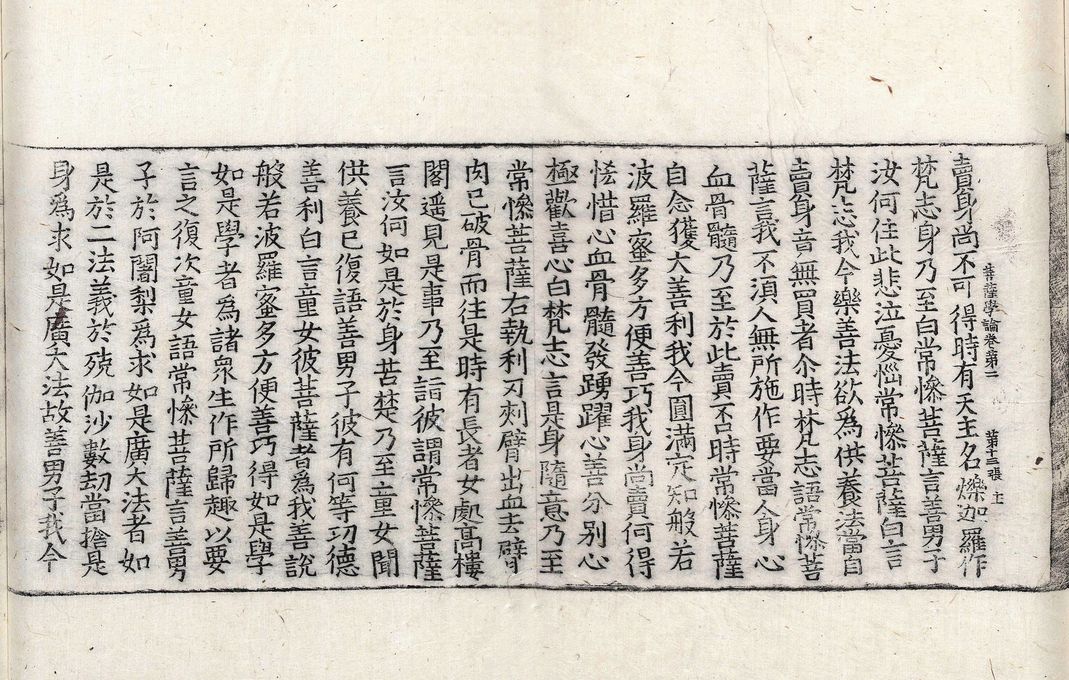 菩薩學論卷第一 第十二張 主
賣身尚不可得時有天主名爍迦羅作
梵志身乃至白常慘菩薩言善男子
汝何住此悲泣憂惱常慘菩薩白言
梵志我今樂善法欲爲供養法當自
賣身竟無買者尒時梵志語常慘菩
薩言我不須人無所施作要當人身心
血骨髓乃至於此賣不時常慘菩薩
自念獲大善利我今圓滿定知般若
波羅蜜多方便善巧我身尚賣何得
恡惜心血骨髓發踴躍心善分别心
極歡喜心白梵志言是身隨意乃至
常慘菩薩右執利刃刾臂出血去髀
肉已破骨而往是時有長者女處高樓
閣遥見是事乃至詣彼謂常慘菩薩
言汝何如是於身苦楚乃至童女聞
供養已復語善男子彼有何等功德
善利白言童女彼菩薩者爲我善說
般若波羅蜜多方便善巧得如是學
如是學者爲諸衆生作所歸趣以要
言之復次童女語常慘菩薩言善男
子於阿闍梨爲求如是廣大法者如
是於二法義於殑伽沙數劫當捨是
身爲求如是廣大法故善男子我今